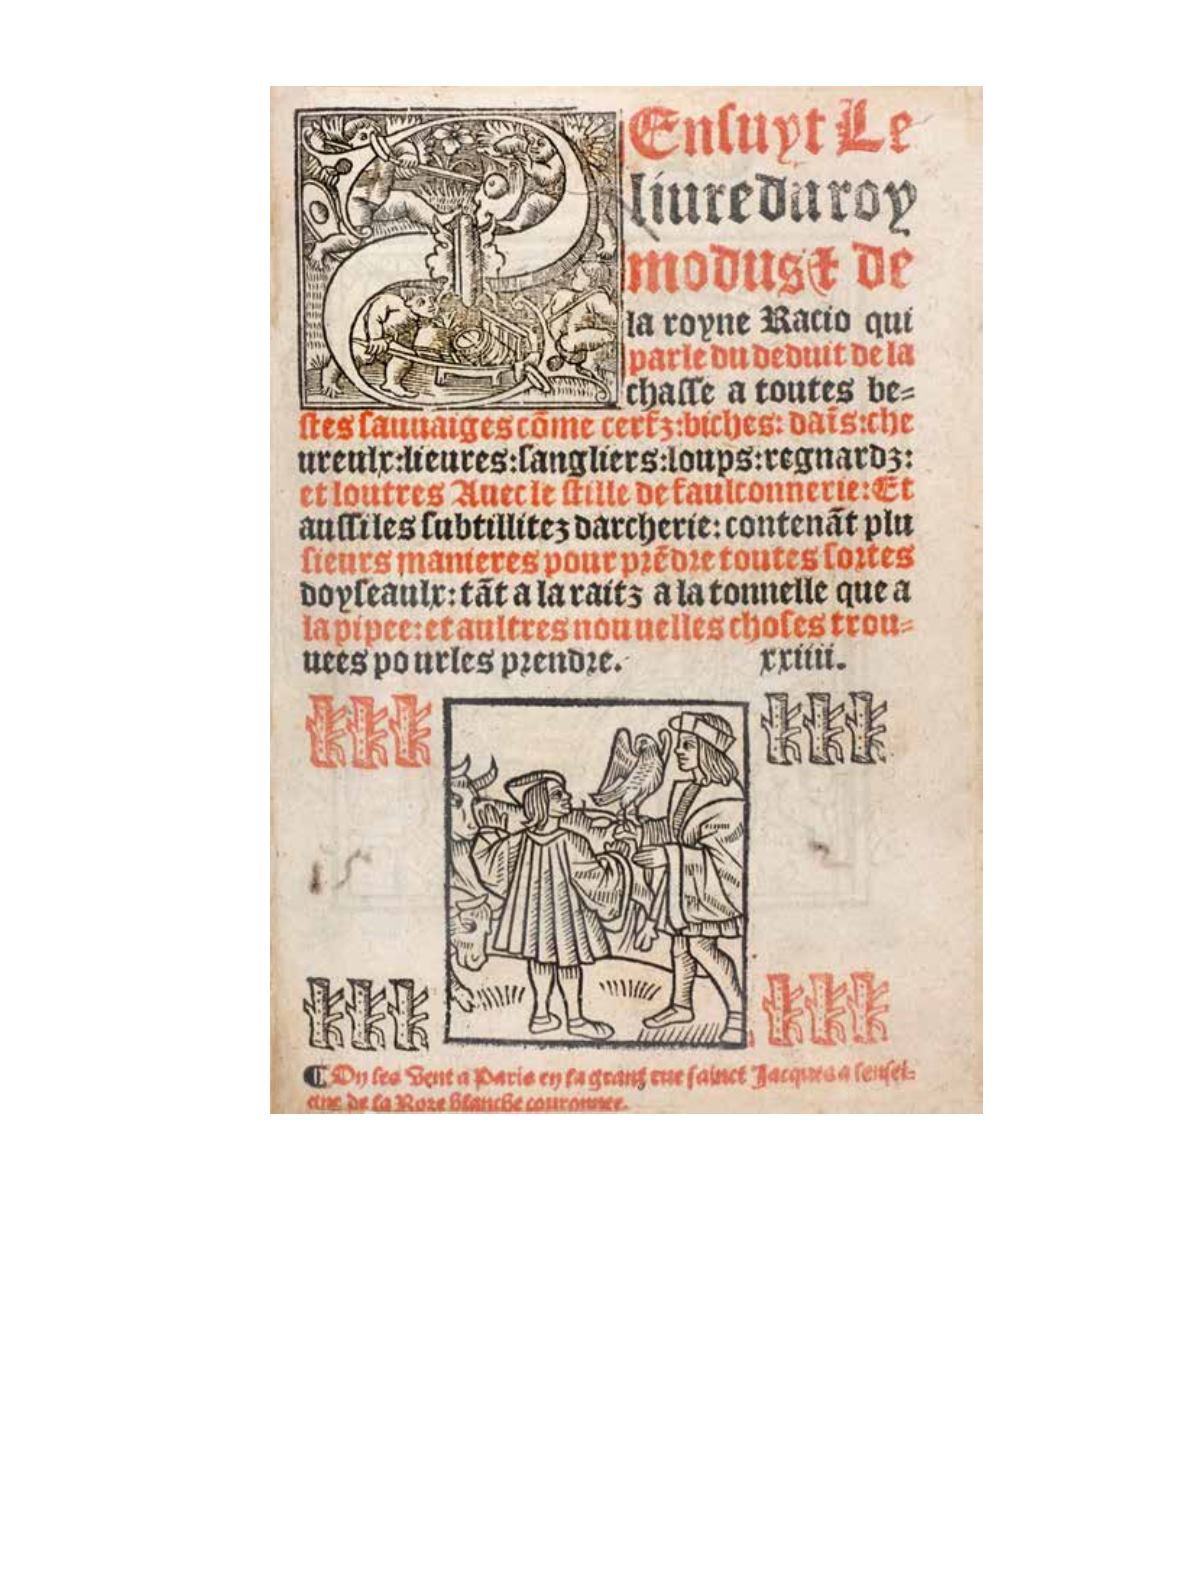 SEnsuyt Le
liure du roy
modus & de
la royne Racio qui
parle du deduit de la
chasse a toutes be=
stes sauuaiges cõme cerfz: biches: daĩs: che
ureulx: lieures: sangliers: loups: regnardz:
et loutres Auec le stille de faulconnerie: Et
aussi les subtillitez darcherie: contenãt plu
sieurs manieres pour prẽdre toutes sortes
doyseaulx: tãt a la raitz a la tonnelle que a
la pipee: et aultres nouuelles choses trou=
uees pour les prendre. xxiiii.
¶ On les vent a Paris en la grant rue sainct Jacques a lensei=
gne de la Roze blanche couronnee.